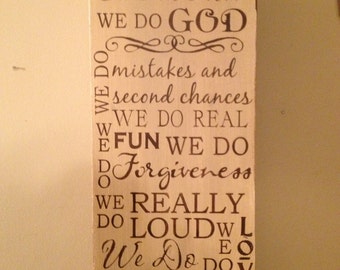 WE DO GOD
WE DO
mistakes and
second chances
WE DO REAL
WE DO
FUN WE DO
Forgiveness
WE DO
REALLY
LOUD
WE DO
We Do